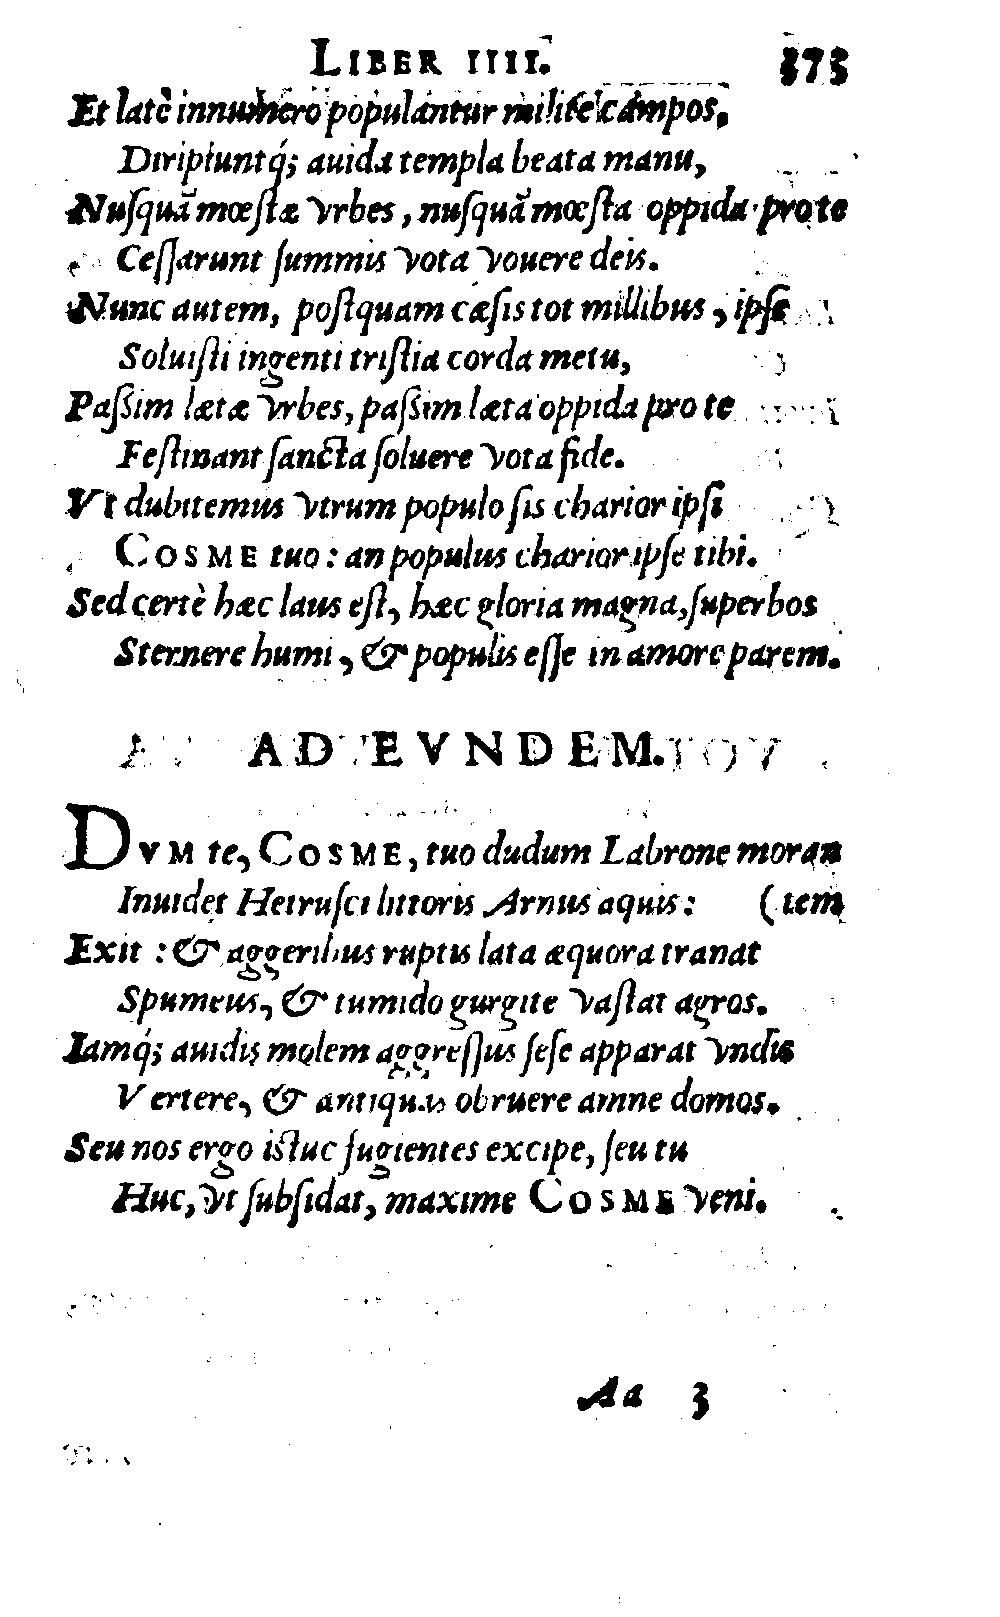 LIBER IIII. 373
Et latè innumero populantur milite campos,
Diripiuntq́; auida templa beata manu,
Nuſquã mœſtæ vrbes, nuſquã mœſta oppida pro te
Ceſſarunt ſummis vota vouere deis.
Nunc autem, poſtquam cæſis tot millibus, ipſe
Soluiſti ingenti triſtia corda metu,
Paſſim lætæ vrbes, paſſim læta oppida pro te
Feſtinant ſancta ſoluere vota fide.
Vt dubitemus vtrum populo ſis charior ipſi
COSME tuo: an populus charior ipſe tibi.
Sed certè hæc laus eſt, hæc gloria magna, ſuperbos
Sternere humi, & populis eſſe in amore parem.
AD EVNDEM.
DVM te, COSME, tuo dudum Labrone moran
Inuidet Hetruſci littoris Arnus aquis: (tem
Exit: & aggeribus ruptis lata æquora tranat
Spumeus, & tumido gurgite vaſtat agros.
Iamq́; auidis molem aggreſſus ſeſe apparat vndis
Vertere, & antiquas obruere amne domos.
Seu nos ergo iſtuc fugientes excipe, ſeu tu
Huc, vt ſubſidat, maxime COSME veni.
Aa 3